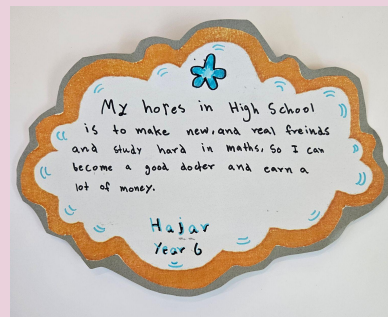 My hopes in High School
is to make new, and real freinds
and study hard in maths, so I can
become a good docter and earn a
lot of money.
Hajar
Year 6